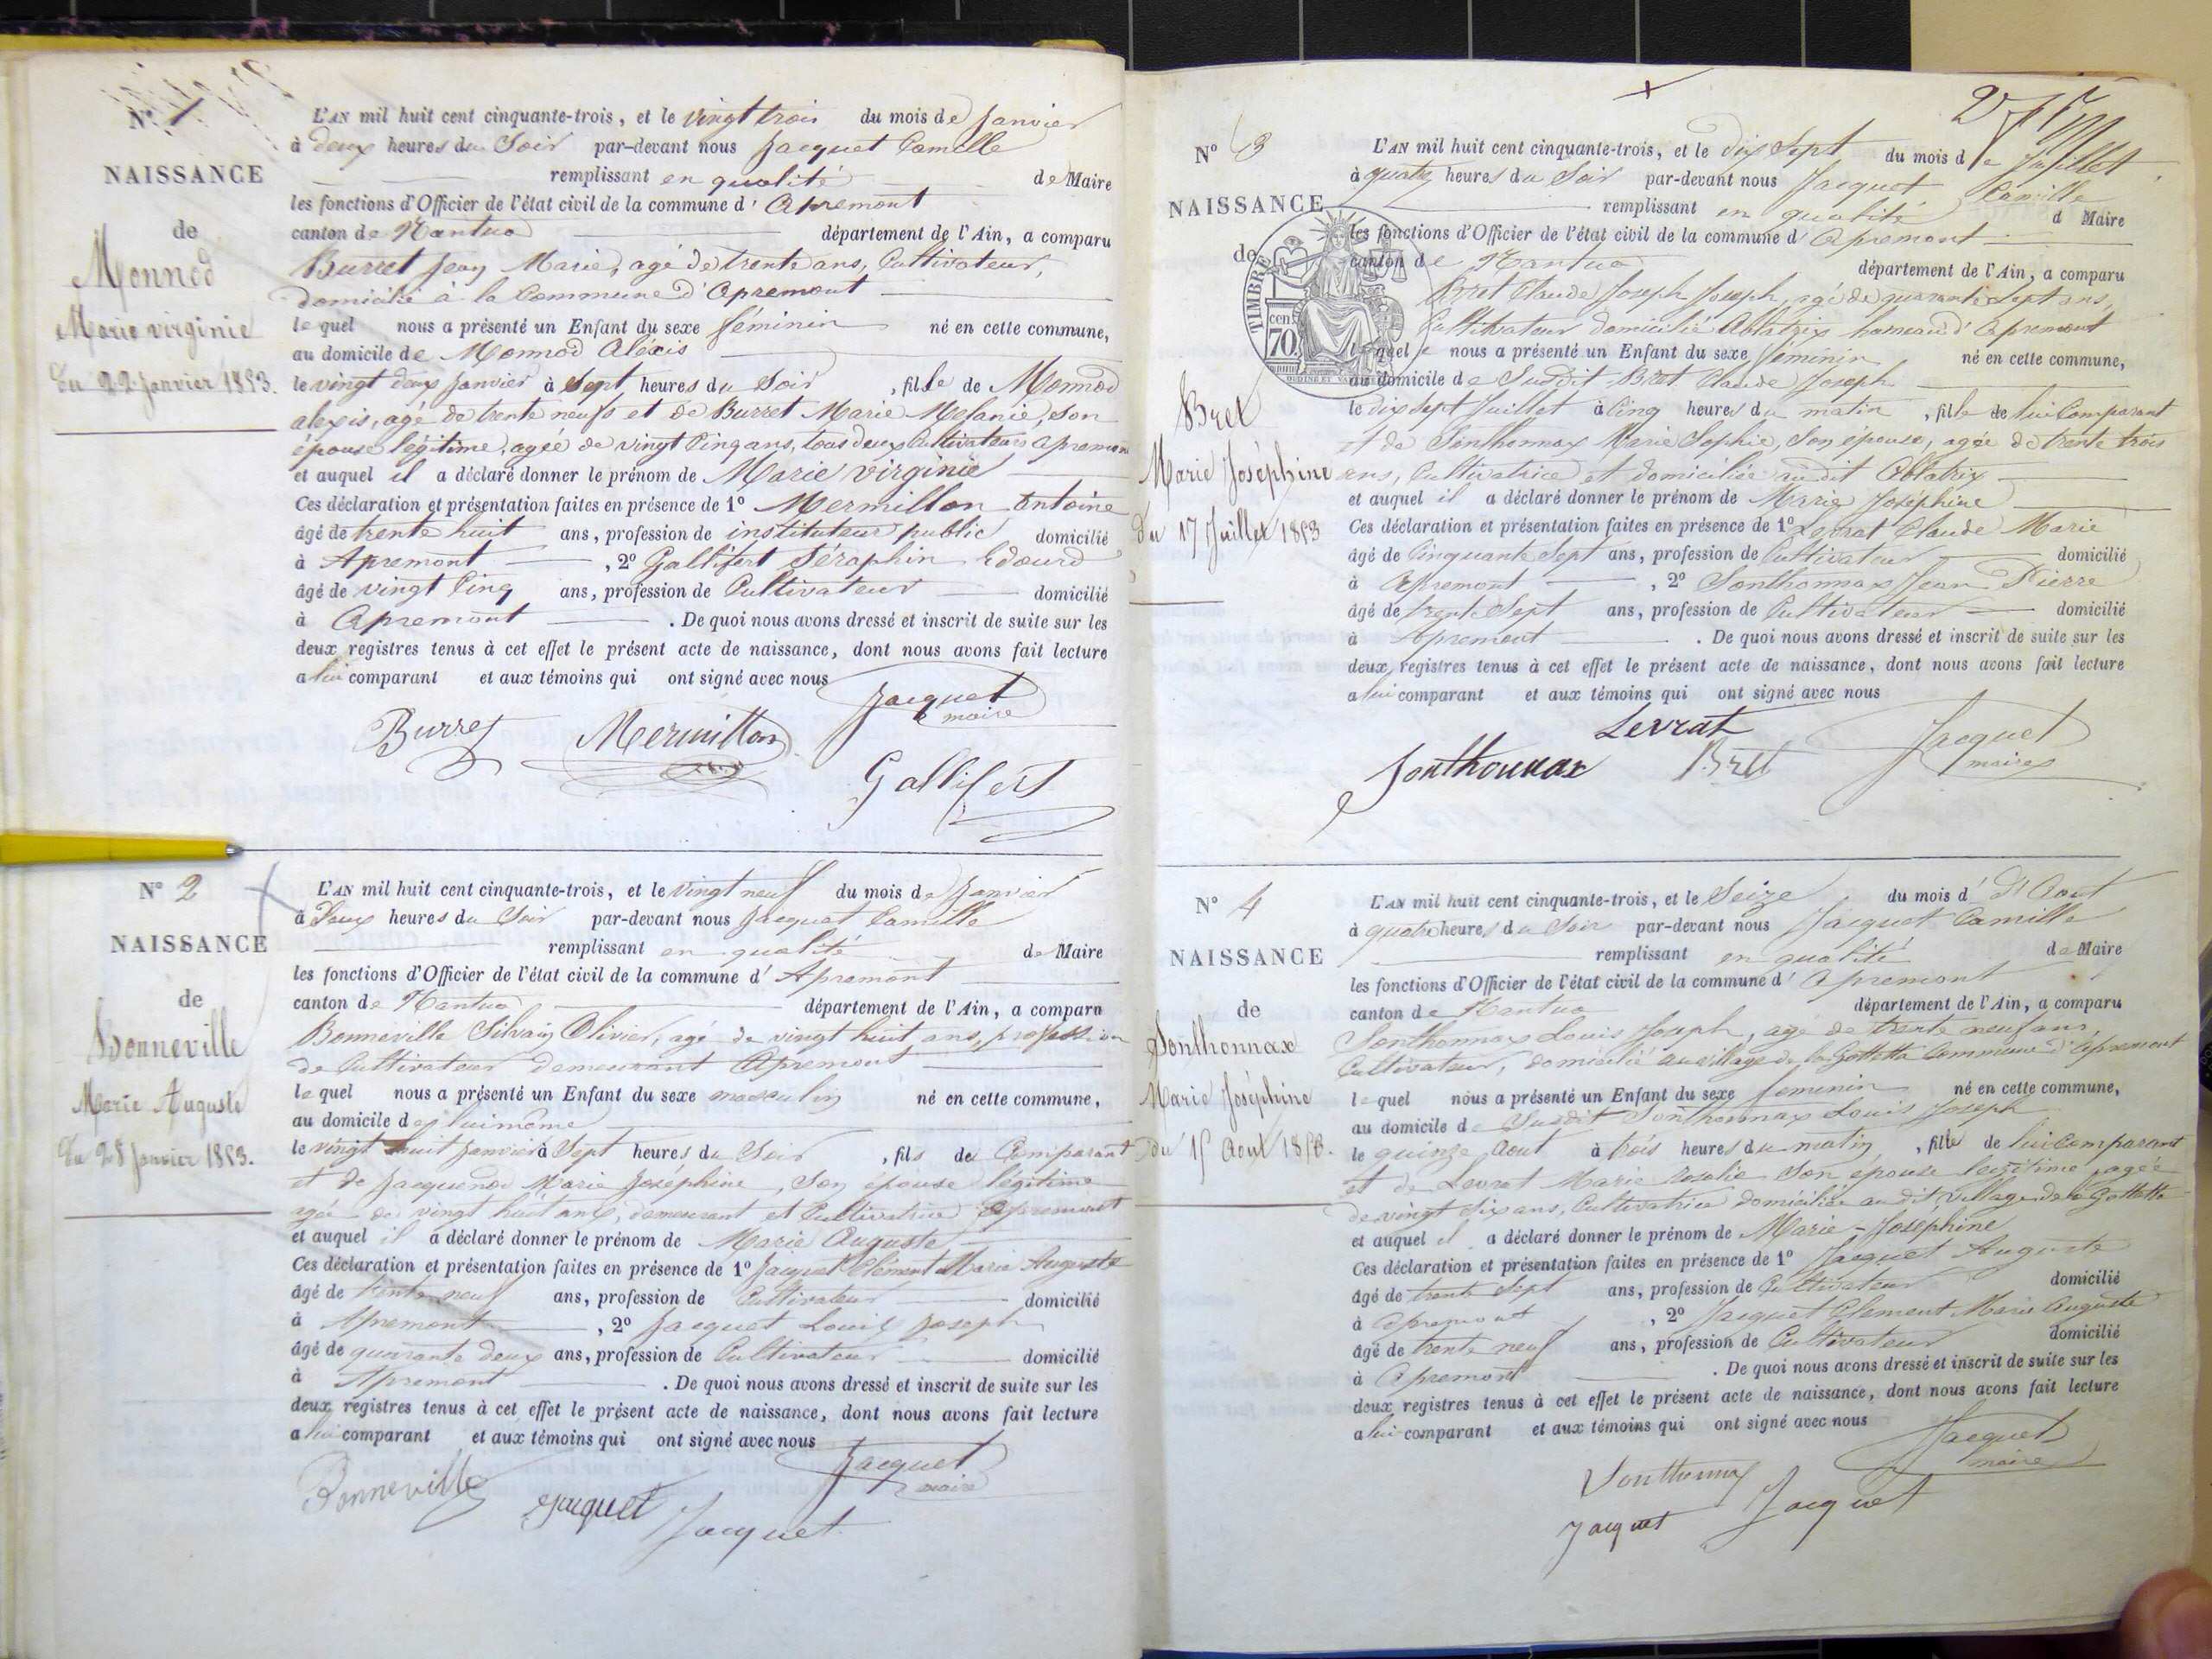 N° 1
NAISSANCE
de
Monnod
Marie virginie
Du 22 Janvier 1853.
L'AN mil huit cent cinquante-trois, et le vingt trois du mois de Janvier
à deux heures du Soir par-devant nous Jacquet Camille
remplissant en qualité de Maire
les fonctions d'Officier de l'état civil de la commune d' Apremont
canton de Nantua département de l'Ain, a comparu
Burret Jean Marie, agé de trente ans, Cultivateur,
domicilié à la Commune d'Apremont
lequel nous a présenté un Enfant du sexe féminin né en cette commune,
au domicile de Monnod Aléxis
le vingt deux Janvier à Sept heures du Soir, fille de Monnod
alexis, agé de trente neufs et de Burret Marie Melanie, son
épouse légitime, agée de vingt Cinq ans, tous deux Cultivateurs Apremont
et auquel il a déclaré donner le prénom de Marie virginie
Ces déclaration et présentation faites en présence de 1° Mermillon Antoine
âgé de trente huit ans, profession de instituteur public domicilié
à Apremont, 2° Gallifert Séraphin Edouard
âgé de vingt Cinq ans, profession de Cultivateur domicilié
à Apremont. De quoi nous avons dressé et inscrit de suite sur les
deux registres tenus à cet effet le présent acte de naissance, dont nous avons fait lecture
a lui comparant et aux témoins qui ont signé avec nous
Jacquet
maire
Burret Mermillon
Gallifert
N° 2
NAISSANCE
de
Bonneville
Marie Auguste
Du 28 Janvier 1853.
L'AN mil huit cent cinquante-trois, et le vingt neuf du mois de Janvier
à Deux heures du Soir par-devant nous Jacquet Camille
remplissant en qualité de Maire
les fonctions d'Officier de l'état civil de la commune d' Apremont
canton de Nantua département de l'Ain, a comparu
Bonneville Silvain Olivier, agé de vingt huit ans, profession
de Cultivateur demeurant Apremont
lequel nous a présenté un Enfant du sexe masculin né en cette commune,
au domicile de luimême
le vingt huit Janvier à Sept heures du Soir, fils de Comparant
et de Jacquenod Marie Joséphine, Son épouse légitime
agée de vingt huit ans, demeurant et Cultivatrice Apremont
et auquel il a déclaré donner le prénom de Marie Auguste
Ces déclaration et présentation faites en présence de 1° Jacquet Clément Marie Auguste
âgé de trente neuf ans, profession de Cultivateur domicilié
à Apremont, 2° Jacquet Louis Joseph
âgé de quarante deux ans, profession de Cultivateur domicilié
à Apremont. De quoi nous avons dressé et inscrit de suite sur les
deux registres tenus à cet effet le présent acte de naissance, dont nous avons fait lecture
a lui comparant et aux témoins qui ont signé avec nous
Jacquet
maire
Bonneville Jacquet Jacquet
N° 3
NAISSANCE
de
TIMBRE
cen.
70
Bret
Marie Joséphine
Du 17 Juillet 1853
L'AN mil huit cent cinquante-trois, et le dix Sept du mois de Juillet
à quatre heures du Soir par-devant nous Jacquet Camille
remplissant en qualité d Maire
les fonctions d'Officier de l'état civil de la commune d' Apremont
canton de Nantua département de l'Ain, a comparu
Bret Claude Joseph Joseph, agé de quarante Sept ans,
Cultivateur domicilié Ablatrix hameau d'Apremont
lequel nous a présenté un Enfant du sexe féminin né en cette commune,
au domicile de Susdit Bret Claude Joseph
le dix Sept Juillet à Cinq heures du matin, fille de lui Comparant
et de Sonthonnax Marie Sophie, Son épouse, agée de trente trois
ans, Cultivatrice et domiciliée au dit Ablatrix
et auquel il a déclaré donner le prénom de Marie Joséphine
Ces déclaration et présentation faites en présence de 1° Levrat Claude Marie
âgé de Cinquante Sept ans, profession de Cultivateur domicilié
à Apremont, 2° Sonthonnax Jean Pierre
âgé de trente Sept ans, profession de Cultivateur domicilié
à Apremont. De quoi nous avons dressé et inscrit de suite sur les
deux registres tenus à cet effet le présent acte de naissance, dont nous avons fait lecture
a lui comparant et aux témoins qui ont signé avec nous
Levrat Jacquet
maire
Sonthonnax Bret
N° 4
NAISSANCE
de
Sonthonnax
Marie Joséphine
Du 15 Aout 1853.
L'AN mil huit cent cinquante-trois, et le Seize du mois d' D'Aout
à quatre heures du Soir par-devant nous Jacquet Camille
remplissant en qualité de Maire
les fonctions d'Officier de l'état civil de la commune d' Apremont
canton de Nantua département de l'Ain, a comparu
Sonthonnax Louis Joseph, agé de trente neuf ans,
Cultivateur, domicilié au village de la Gottetta Commune d'Apremont
lequel nous a présenté un Enfant du sexe femenin né en cette commune,
au domicile d Susdit Sonthonnax Louis Joseph
le quinze Aout à trois heures du matin, fille de lui Comparant
et de Levrat Marie rosalie Son épouse legitime, agée
de vingt Six ans, Cultivatrice domiciliée au dit village de la Gottetta
et auquel il a déclaré donner le prénom de Marie-Joséphine
Ces déclaration et présentation faites en présence de 1° Jacquet Auguste
âgé de trente Sept ans, profession de Cultivateur domicilié
à Apremont, 2° Jacquet Clement Marie Auguste
âgé de trente neuf ans, profession de Cultivateur domicilié
à Apremont. De quoi nous avons dressé et inscrit de suite sur les
deux registres tenus à cet effet le présent acte de naissance, dont nous avons fait lecture
a lui comparant et aux témoins qui ont signé avec nous
Jacquet
maire
Sonthonnax
Jacquet Jacquet